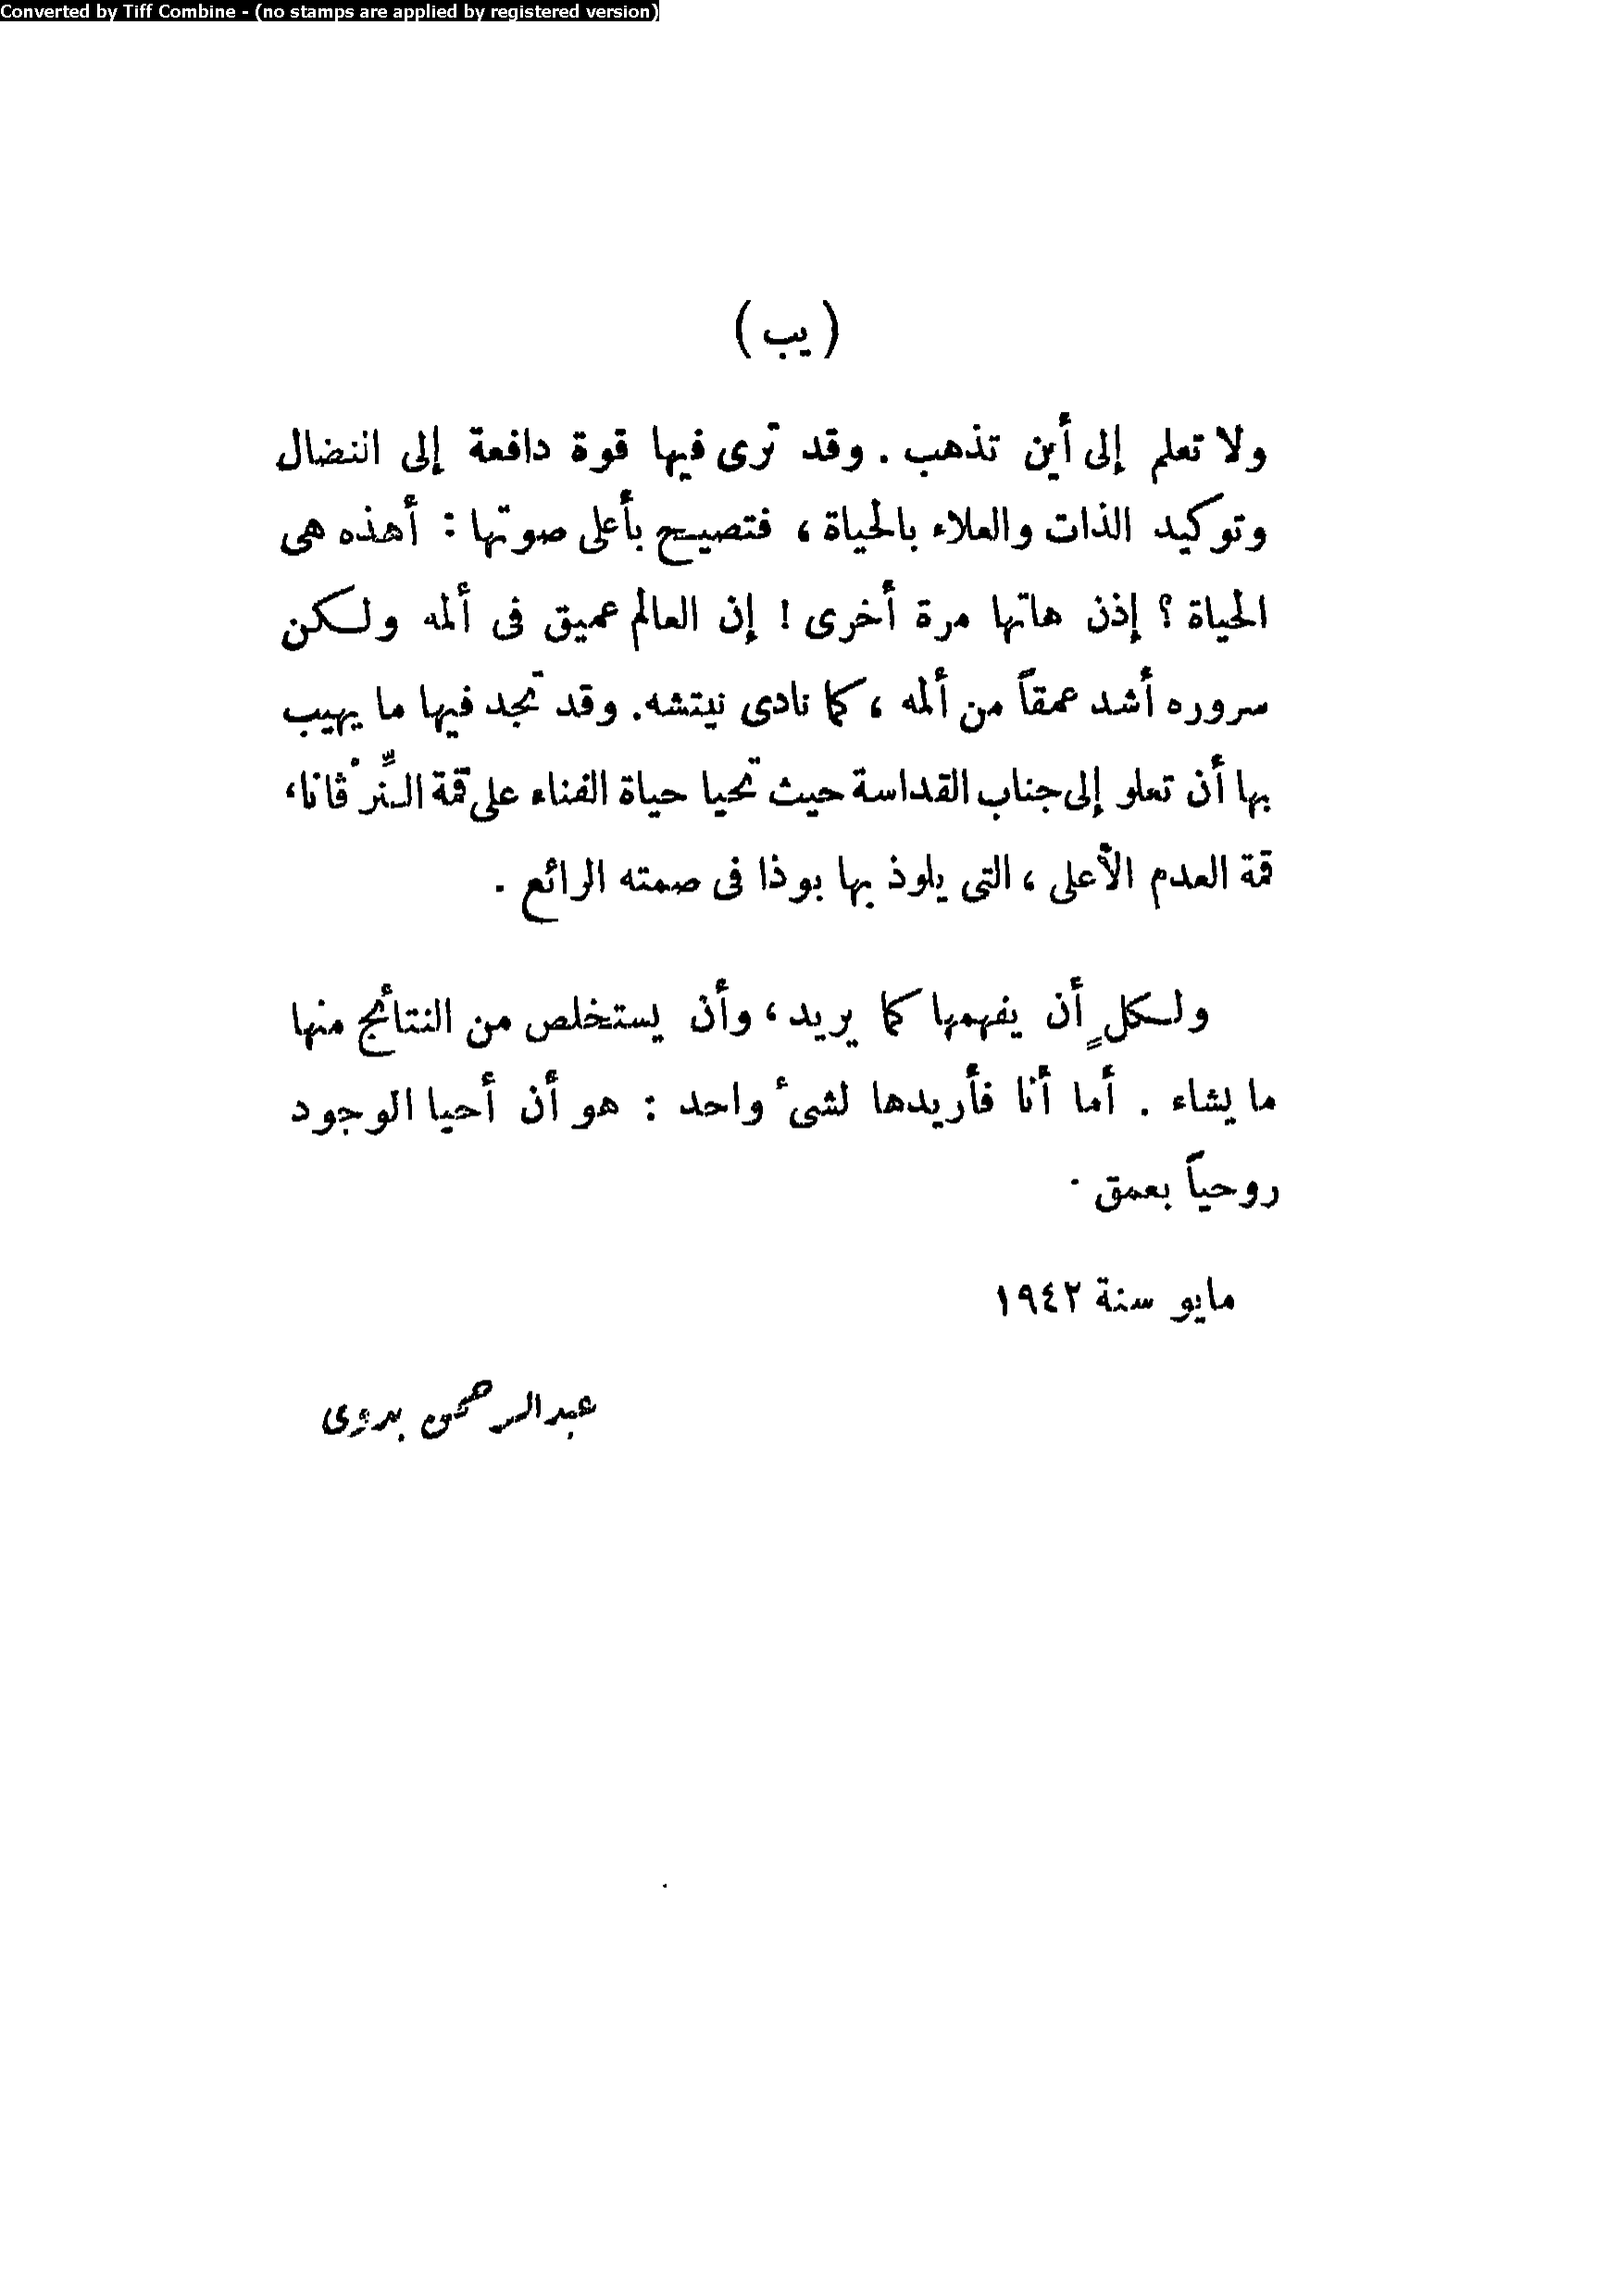 Converted by Tiff Combine - (no stamps are applied by registered version)
( يب )
ولا تعلم إلى أين تذهب . وقد ترى فيها قوة دافعة إلى النضال
وتوكيد الذات والعلاء بالحياة ، فتصيح بأعلى صوتها : أهذه هى
الحياة ؟ إذن هاتها مرة أخرى ! إن العالم عميق فى ألمه ولكن
سروره أشد عمقاً من ألمه ، كما نادى نيتشه. وقد تجد فيها ما يهيب
بها أن تعلو إلى جناب القداسة حيث تحيا حياة الفناء على قمة النِّرْڤانا،
قمة العدم الأعلى ، التى يلوذ بها بوذا فى صمته الرائع .
ولكلٍ أن يفهمها كما يريد، وأن يستخلص من النتائج منها
ما يشاء . أما أنا فأريدها لشىء واحد : هو أن أحيا الوجود
روحياً بعمق .
مايو سنة ١٩٤٢
عبد الرحمن بدوى